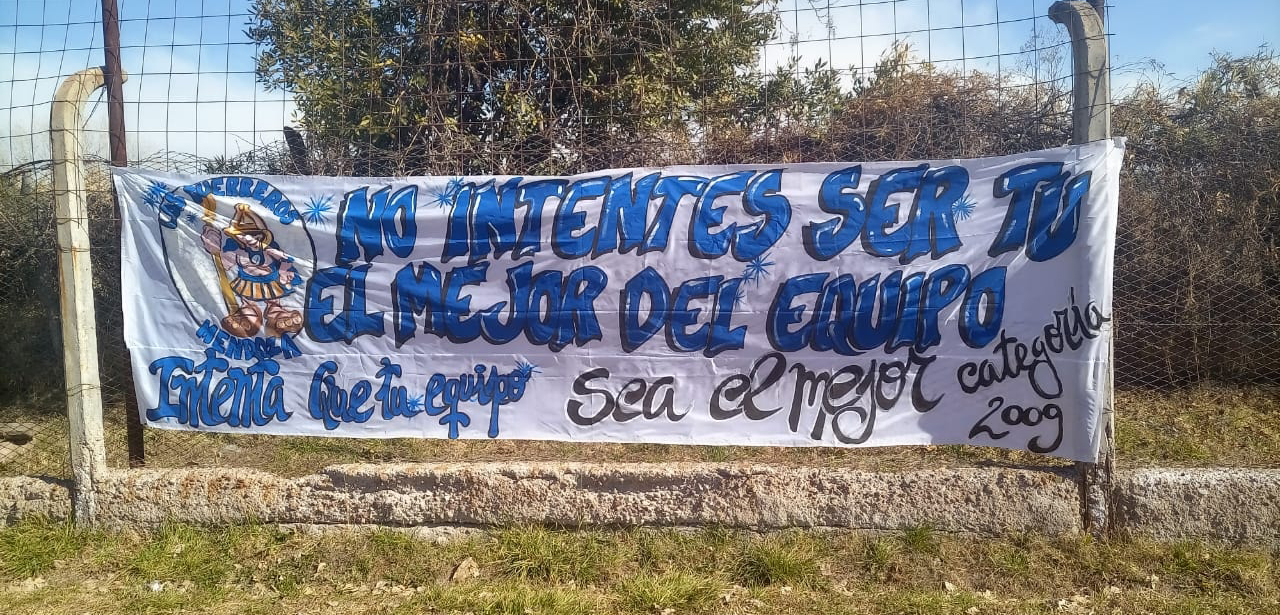 LOS GUERREROS
MENDOZA
NO INTENTES SER TU
EL MEJOR DEL EQUIPO
Intenta Que tu equipo
Sea el mejor categoría
2009